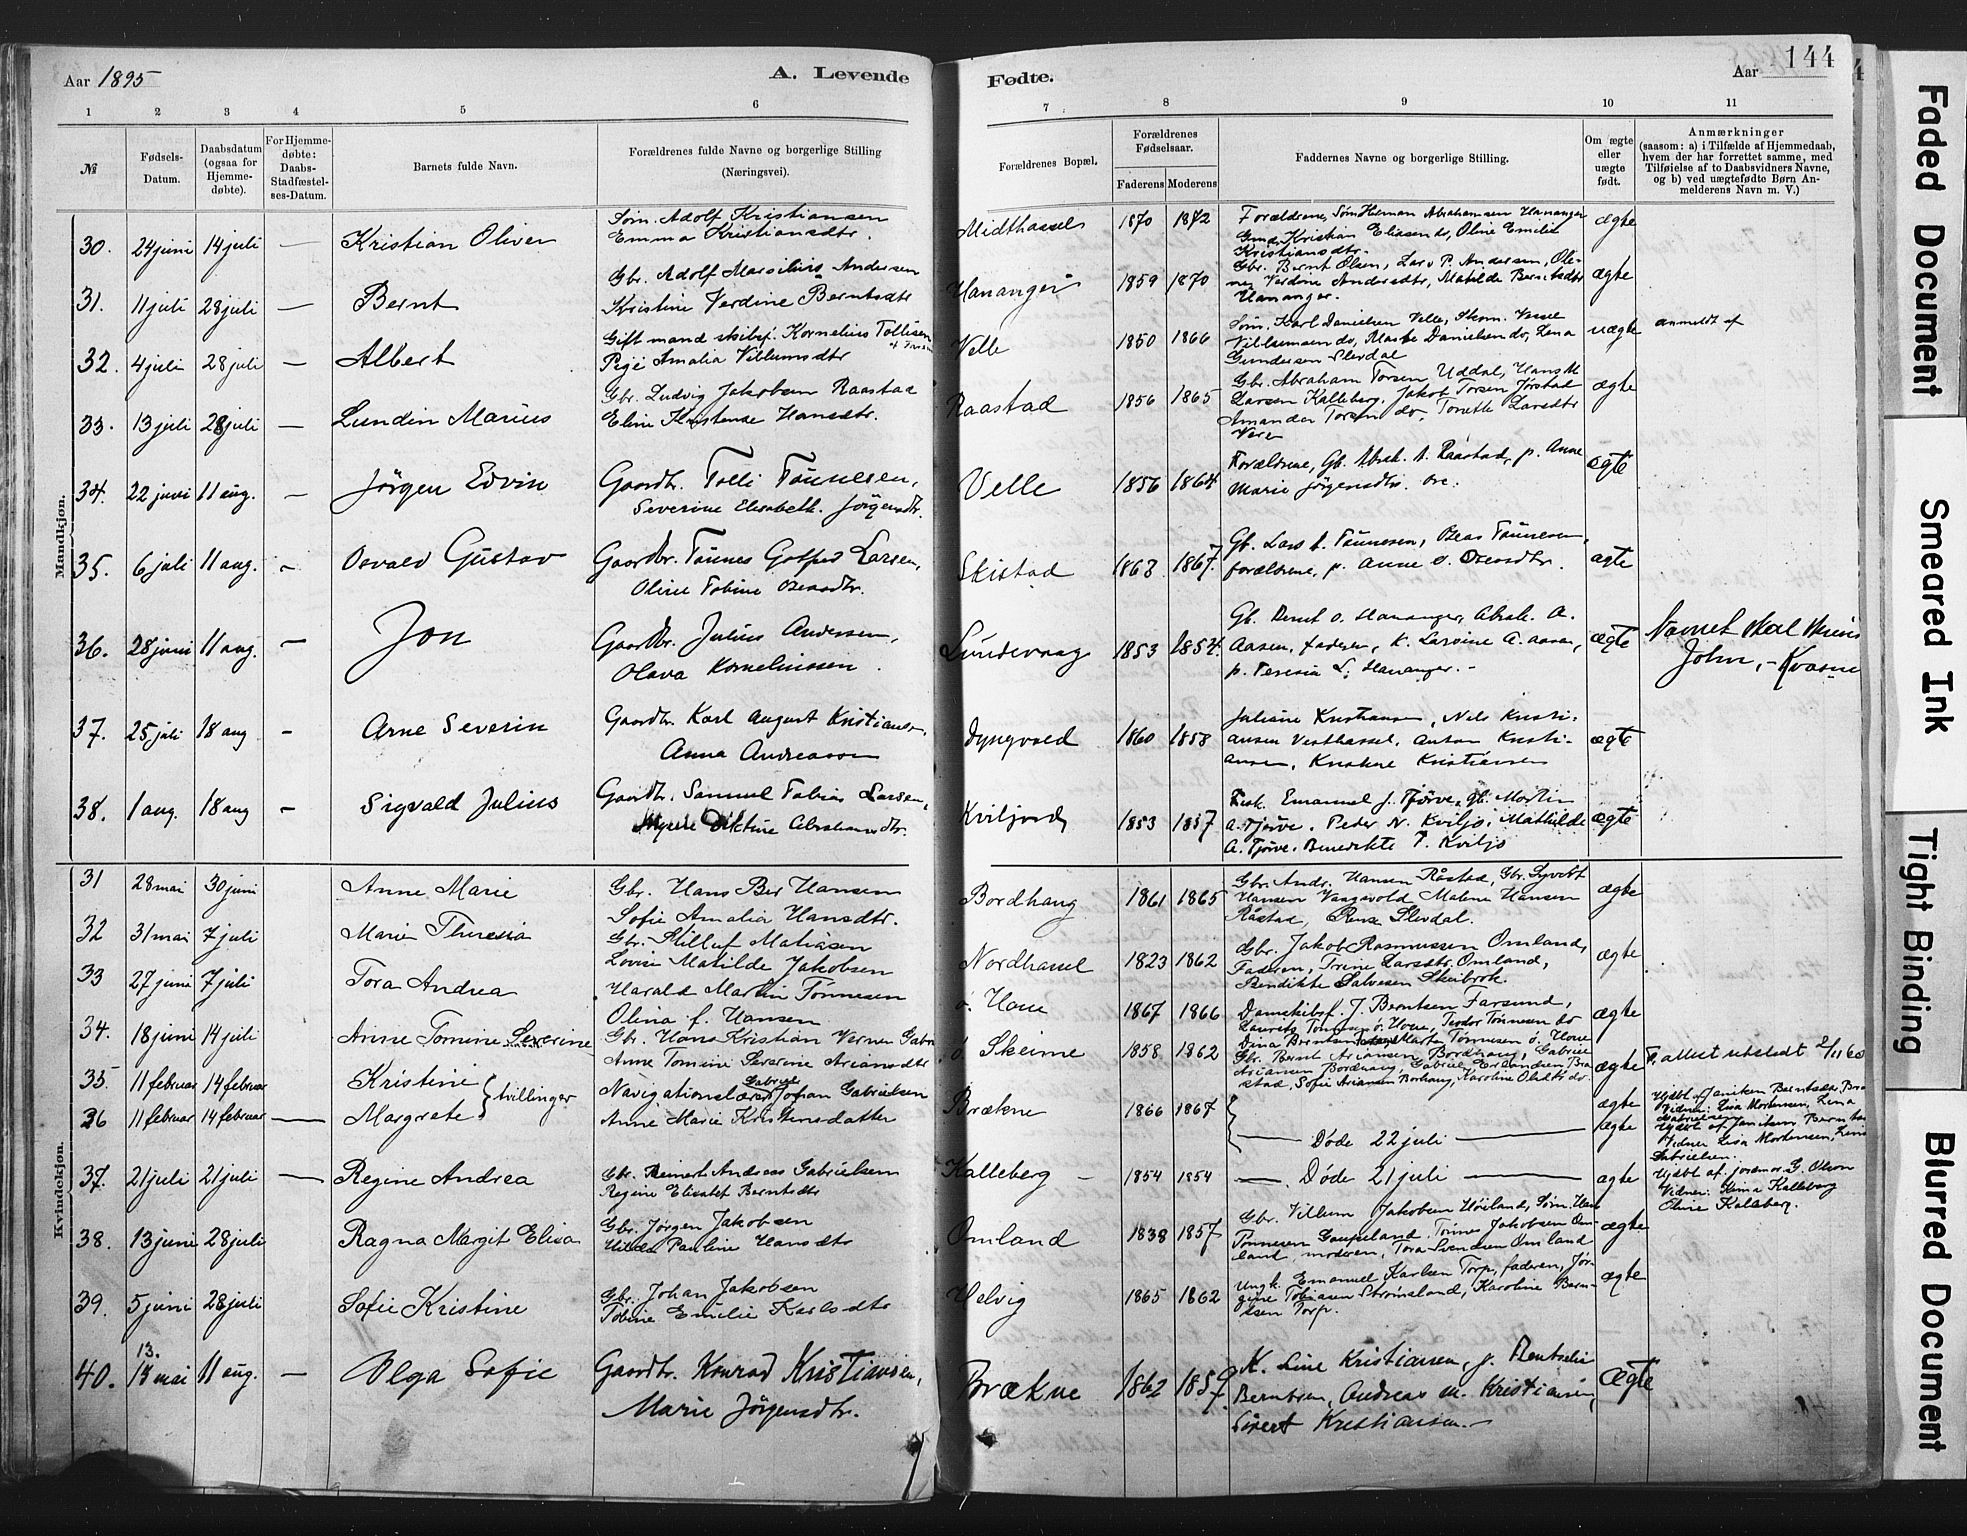 Aar 1895
A. Levende
Fødte.
Aar
144
1 2 3 4 5 6 7 8 9 10 11
№
Fødsels-
Datum.
Daabsdatum
(ogsaa for
Hjemme-
døbte).
For Hjemme-
døbte:
Daabs-
Stadfæstel-
ses-Datum.
Barnets fulde Navn.
Forældrenes fulde Navne og borgerlige Stilling
(Næringsvei).
Forældrenes Bopæl.
Forældrenes
Fødselsaar.
Faderens Moderens
Faddernes Navne og borgerlige Stilling.
Om ægte
eller
uægte
født.
Anmærkninger
(saasom: a) i Tilfælde af Hjemmedaab,
hvem der har forrettet samme, med
Tilføielse af to Daabsvidners Navne,
og b) ved uægtefødte Børn An-
melderens Navn m. V.)
Mandkjøn.
30. 24 juni 14 juli — Kristian Oliver
Søm. Adolf Kristiansen
Emma Kristiansdtr.
Midthassel 1870 1872
Forældrene, Søm Herman Abrahamsen Hananger
Gmd. Kristian Eliasen do, Oline Emilie
Kristiansdtr.
ægte
31. 11 juli 28 juli — Bernt
Gbr. Adolf Marselius Andersen
Kristine Verdine Berntsdtr
Hananger 1859 1870
Gbr. Bernt Olsen, Lars P. Andersen, Oli-
ne Verdine Andersdtr, Matilde Berntsdtr
Hananger.
ægte
32. 4 juli 28 juli — Albert
Gift mand skibsf. Kornelius Tollisen
Pige Amalia Villumsdtr
Velle 1850 1866
Søm. Karl Danielsen Velle, Skom. Vessel
Villumsen do, Marte Danielsen do, Lena
Gundersen Slevdal
uægte
anmeldt af
33. 13 juli 28 juli — Lundin Marius
Gbr. Ludvig Jakobsen Raastad
Eline Kristense Hansdtr.
Raastad 1856 1865
Gbr. Abraham Torsen Uddal, Hans M
Larsen Kalleberg, Jakob Torsen Jørstad
Amanda Torsen do, Tonette Larsdtr
Vere
ægte
34. 22 juni 11 aug. — Jörgen Edvin
Gaardbr. Tolli Tønnesen,
Severine Elisabeth Jörgensdtr.
Velle 1856 1864
Forældrene, Gb. Abrah. A. Raastad, p. Anne
Marie Jörgensdtr. Ore.
ægte
35. 6 juli 11 aug. — Osvald Gustav
Gaardbr. Tønnes Gotfred Larsen,
Oline Tobine Oseasdtr.
Skistad 1863 1867.
Gb. Lars A. Tønnesen, Oseas Tønnesen,
forældrene, p. Anne O. Oseasdtr.
ægte
36. 28 juni 11 aug. — Jon
Gaardbr. Julius Andersen,
Olava Korneliussen.
Lundevaag 1853 1854.
Gb. Bernt O. Hananger, Abrah. A.
Aasen, faderen, k. Larsine A. Aasen,
p. Teresia L. Hananger. -
ægte
Navnet skal skrives
John, - Kvasne
37. 25 juli 18 aug — Arne Severin
Gaardbr. Karl August Kristiansen,
Anna Andreassen
Dyngvold 1860 1858
Juliane Kristiansen, Nils Kristi-
ansen Vesthassel, Anton Kristi-
ansen, Kristine Kristiansen
ægte
38. 1 aug. 18 aug — Sigvald Julius
Gaardbr. Samuel Tobias Larsen,
Diktine Abrahamsdtr.
Kviljord 1853 1857
Fisk. Emanuel J. Tjörve, gb. Martin
A. Tjörve, Peder N. Kviljo, Mathilde
A. Tjörve, Benedikte T. Kviljo
ægte
Kvindekjøn.
31 28 mai 30 juni Anne Marie
Gbr. Hans Ber Hansen
Sofie Amalia Hansdtr.
Bordhaug 1861 1865
Gbr. Andr. Hansen Råstad, Gbr. Syvert
Hansen Vaagsvold Malene Hansen
Råstad, Slevdal.
ægte
32 31 mai 7 juli Marie Theresia
Gbr. Stilluf Matiasen
Lovise Matilde Jakobsen
Nordhassel 1823 1862
Gbr. Jakob Rasmussen Omland,
Faderen, Trine Larsdtr. Omland,
Bendikte Salvesen Skeibrok.
ægte
33 27 juni 7 juli Tora Andrea
Harald Martin Tönnesen
Olina f. Hansen
ö. Hove 1867 1866
Damskibsf. J. Berntsen Farsund,
Laurits Tönnesen ö. Hove, Teodor Tönnesen do
Dina Berntsen Farsund Marta Tönnesen ö. Hove
ægte
34. 18 juni 14 juli Anne Tomine Severine
Gbr. Hans Kristian Verner Gabr
Anne Tomine Severine Ariansdtr
ö. Skeime 1858 1862
Gbr. Bernt Ariansen Bordhaug, Gabriel
Ariansen Bordhaug, Gabriel Erlandsen Bra-
stad, Sofie Ariansen Borhaug, Karoline Olsdtr do.
ægte
F. attest utstedt 2/11 60
35 11 februar 14 februar Kristine } tvillinger
36 11 februar 14 februar — Margrete
Navigationslærer Gabriel Johan Gabrielsen
Anne Marie Kristensdatter
Brækne 1866 1867
— Døde 22 juli —
ægte
ægte
Hjdbt. af Janiken Berntsdtr, Bra
Vidner: Lisa Mortensen, Lena
Gabrielsen
Hjdbt. af Janiken Bernts
Vidner Lisa Mortensen, Lena
Gabrielsen.
37. 21 juli 21 juli — Regine Andrea
Gbr. Reinert Andreas Gabrielsen
Regine Elisabet Berntsdtr
Kalleberg - 1854 1854
— Døde 21 juli —
ægte
Hjdbt. af. jordmor G. Olson
Vidner: Kina Kalleberg
Oline Kaleberg.
38. 13 juni 28 juli Ragna Margit Elisa
Gbr. Jørgen Jakobsen
Hilda Pauline Hansdtr
Omland 1838 1857
Gbr. Villum Jakobsen Høiland, Søm. Han
Tønnesen Gaupeland, Tønnes Jakobsen Om-
land, moderen, Tora Svendsen Omland
ægte
39. 5 juni 28 juli Sofie Kristine
Gbr. Johan Jakobsen
Tobine Emilie Karlsdtr
Helvig 1865 1862
Ungk. Emanuel Karlsen Torp, faderen, Jør-
gine Tobiasen Strømsland, Karoline Bern-
tsen Torp.
ægte
13.
40. 13 mai 11 aug. — Olga Sofie
Gaardbr. Konrad Kristiansen,
Marie Jörgensdtr.
Brækne 1862 1859.
K. Line Kristiansen, p. Rentselie
Berntsen, Andreas M. Kristiansen,
Sivert Kristiansen. -
Ægte
Faded Document
Smeared Ink
Tight Binding
Blurred Document